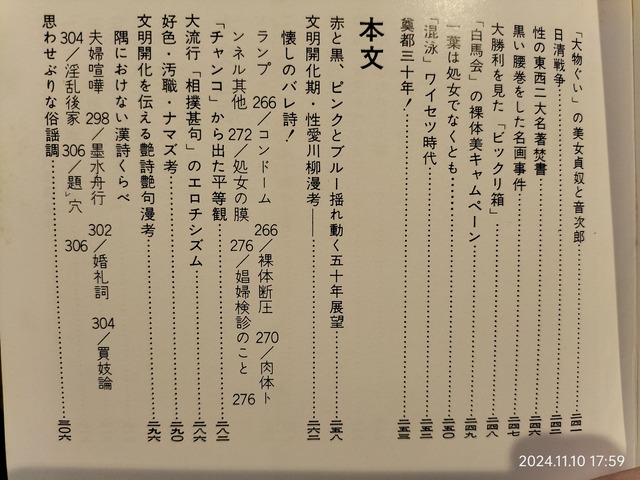 「大物ぐい」の美女貞奴と音次郎……二四一
日清戦争……二四二
性の東西二大名著焚書……二四六
黒い腰巻をした名画事件……二四七
大勝利を見た「ビックリ箱」……二四八
「白馬会」の裸体美キャムペーン……二四九
一葉は処女でなくとも……二五〇
「混泳」ワイセツ時代……二五二
奠都三十年!……二五三
本文
赤と黒、ピンクとブルー揺れ動く五十年展望……二五八
文明開化期・性愛川柳漫考――……二六二
懐しのバレ詩!
ランプ 266/コンドーム 266/裸体断圧 270/肉体ト
ンネル其他 272/処女の膜 276/娼婦検診のこと 276
「チャンコ」から出た平等観……二八二
大流行「相撲甚句」のエロチシズム……二八六
好色・汚職・ナマズ考……二九〇
文明開化を伝える艶詩艶句漫考……二九六
隅におけない漢詩くらべ
夫婦喧嘩 298/墨水舟行 302/婚礼詞 304/買妓論
304/淫乱後家 306/題㆑穴 306
思わせぶりな俗謡調……三〇六
2024.11.10 17:59